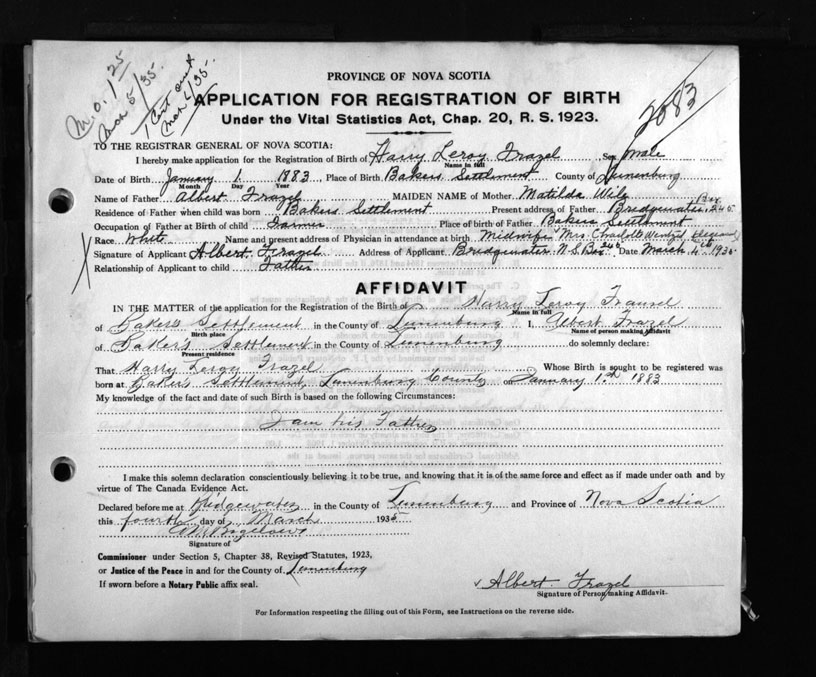 M.O. 1.25
March 5/35.
1 Cert sent
Mar 6/35.
2083
PROVINCE OF NOVA SCOTIA
APPLICATION FOR REGISTRATION OF BIRTH
Under the Vital Statistics Act, Chap. 20, R. S. 1923.
TO THE REGISTRAR GENERAL OF NOVA SCOTIA:
I hereby make application for the Registration of Birth of Harry Leroy Frazel Sex Male
Name in full
Date of Birth January 1 1883 Place of Birth Bakers Settlement County of Lunenburg
Month Day Year
Name of Father Albert Frazel MAIDEN NAME of Mother Matilda Wile
Residence of Father when child was born Bakers Settlement Present address of Father Bridgewater Box 245
Occupation of Father at Birth of child Farmer Place of birth of Father Bakers Settlement
Race White Name and present address of Physician in attendance at birth Midwife Mrs. Charlotte Wentzel (deceased)
Signature of Applicant Albert Frazel Address of Applicant Bridgewater N.S. Box 245 Date March 4th 1935
Relationship of Applicant to child Father
AFFIDAVIT
IN THE MATTER of the application for the Registration of the Birth of Harry Leroy Frausel
Name in full
of Baker's Settlement in the County of Lunenburg I, Albert Frazel
Birth place Name of person making Affidavit
of Baker's Settlement in the County of Lunenburg do solemnly declare:
Present residence
That Harry Leroy Frazel Whose Birth is sought to be registered was
born at Baker's Settlement, Lunenburg County on January 1st 1883
My knowledge of the fact and date of such Birth is based on the following Circumstances:
I am his Father
I make this solemn declaration conscientiously believing it to be true, and knowing that it is of the same force and effect as if made under oath and by
virtue of The Canada Evidence Act.
Declared before me at Bridgewater in the County of Lunenburg and Province of Nova Scotia
this fourth day of March 1935
Signature of
Commissioner under Section 5, Chapter 38, Revised Statutes, 1923,
or Justice of the Peace in and for the County of Lunenburg
If sworn before a Notary Public affix seal.
Albert Frazel
Signature of Person making Affidavit.
For Information respecting the filling out of this Form, see Instructions on the reverse side.